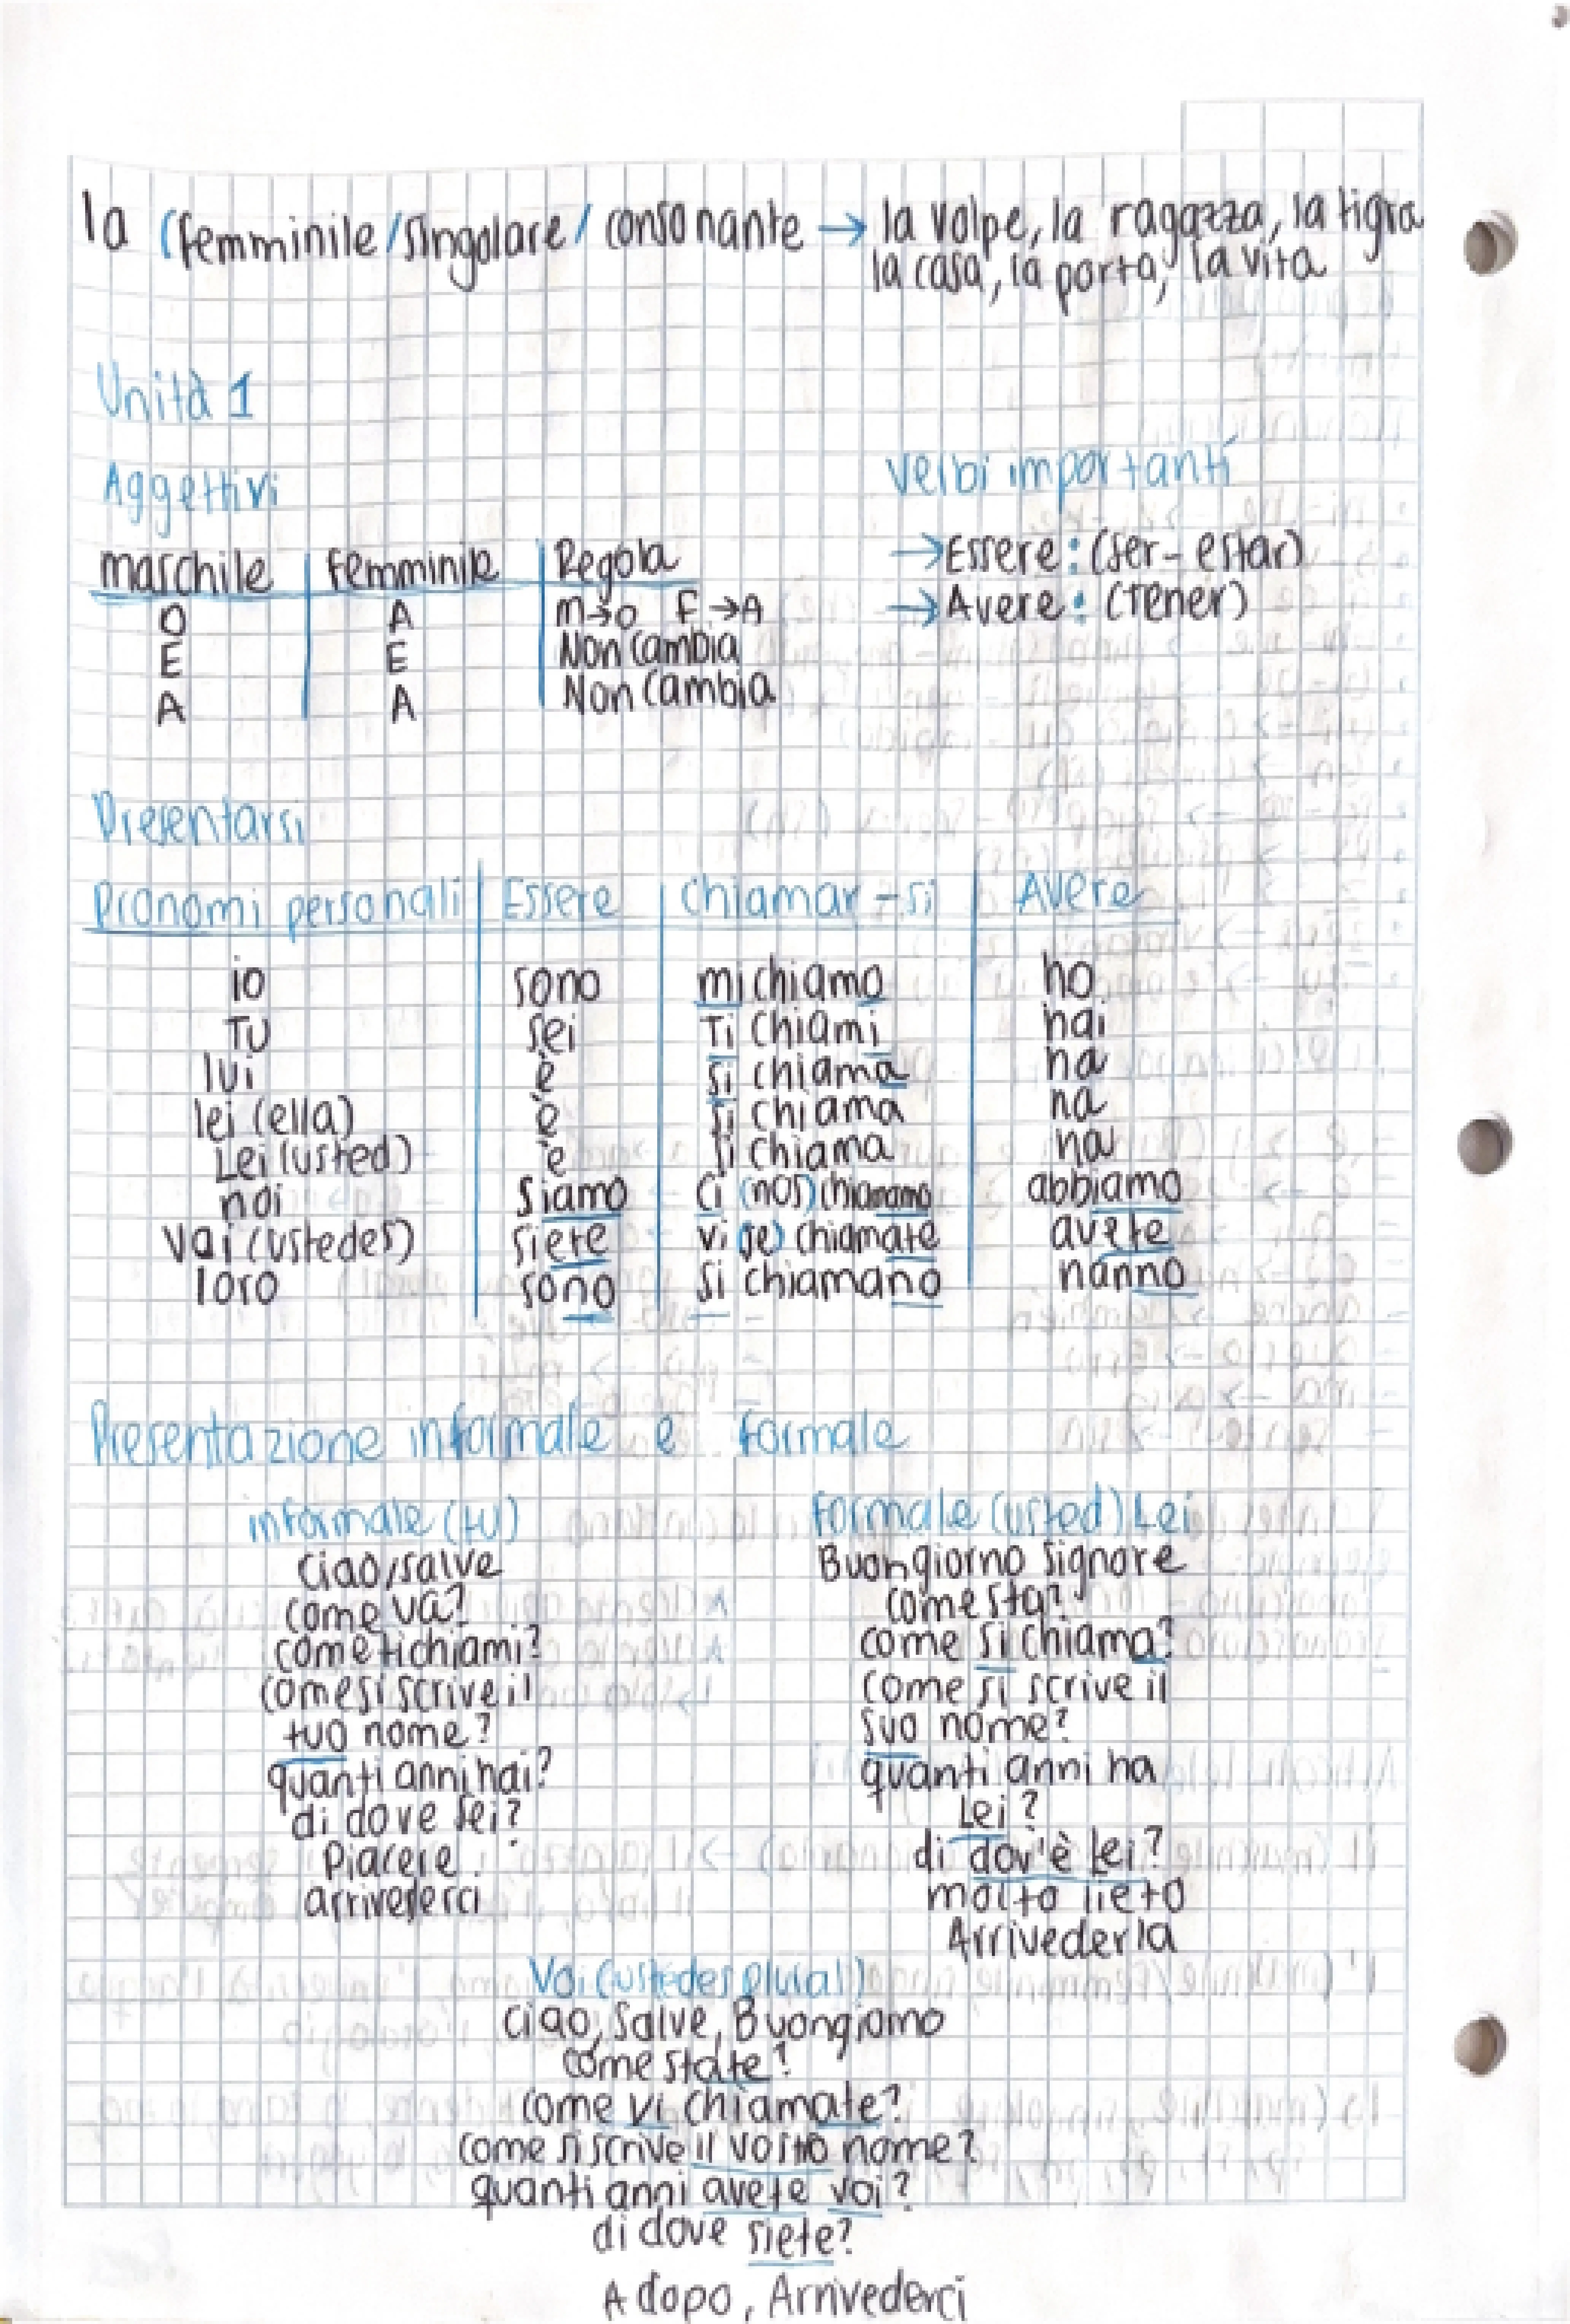 la (femminile/singolare/ consonante → la volpe, la ragazza, la tigra
la casa, la porta, la vita
Unità 1
Aggettivi
verbi importanti
maschile femminile Regola
→Essere: (ser-estar)
O A m→o F→A
→Avere: (Tener)
E E Non cambia
A A Non cambia
Presentarsi
Pronomi personali Essere chiamar-si Avere
io sono mi chiamo ho
TU sei Ti chiami hai
lui è si chiama ha
lei (ella) è si chiama ha
Lei (usted) è si chiama ha
noi siamo ci (nos) chiamamo abbiamo
Voi (ustedes) siete vi (se) chiamate avete
loro sono si chiamano hanno
Presentazione informale e Formale
informale (tu) Formale (usted) Lei
ciao/salve Buongiorno signore
come va? come sta?
come ti chiami? come si chiama?
come si scrive il come si scrive il
tuo nome? suo nome?
quanti anni hai? quanti anni ha
di dove sei? Lei?
Piacere. di dov'è Lei?
arrivederci molto lieto
Arrivederla
Voi (ustedes plural)
ciao, Salve, Buongiorno
come state?
come vi chiamate?
come si scrive il vostro nome?
quanti anni avete voi?
di dove siete?
A dopo, Arrivederci